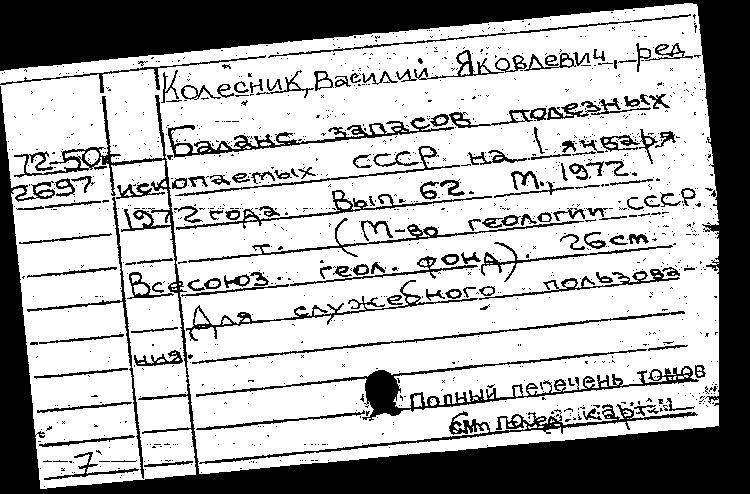 Колесник, Василий Яковлевич, ред
72-50к
2697
Баланс запасов полезных
ископаемых СССР на 1 января
1972 года. Вып. 62. М., 1972.
т. (М-во геологии СССР.
Всесоюз. геол. фонд). 26см.
Для служебного пользова-
ния.
Полный перечень томов
см. карт
7